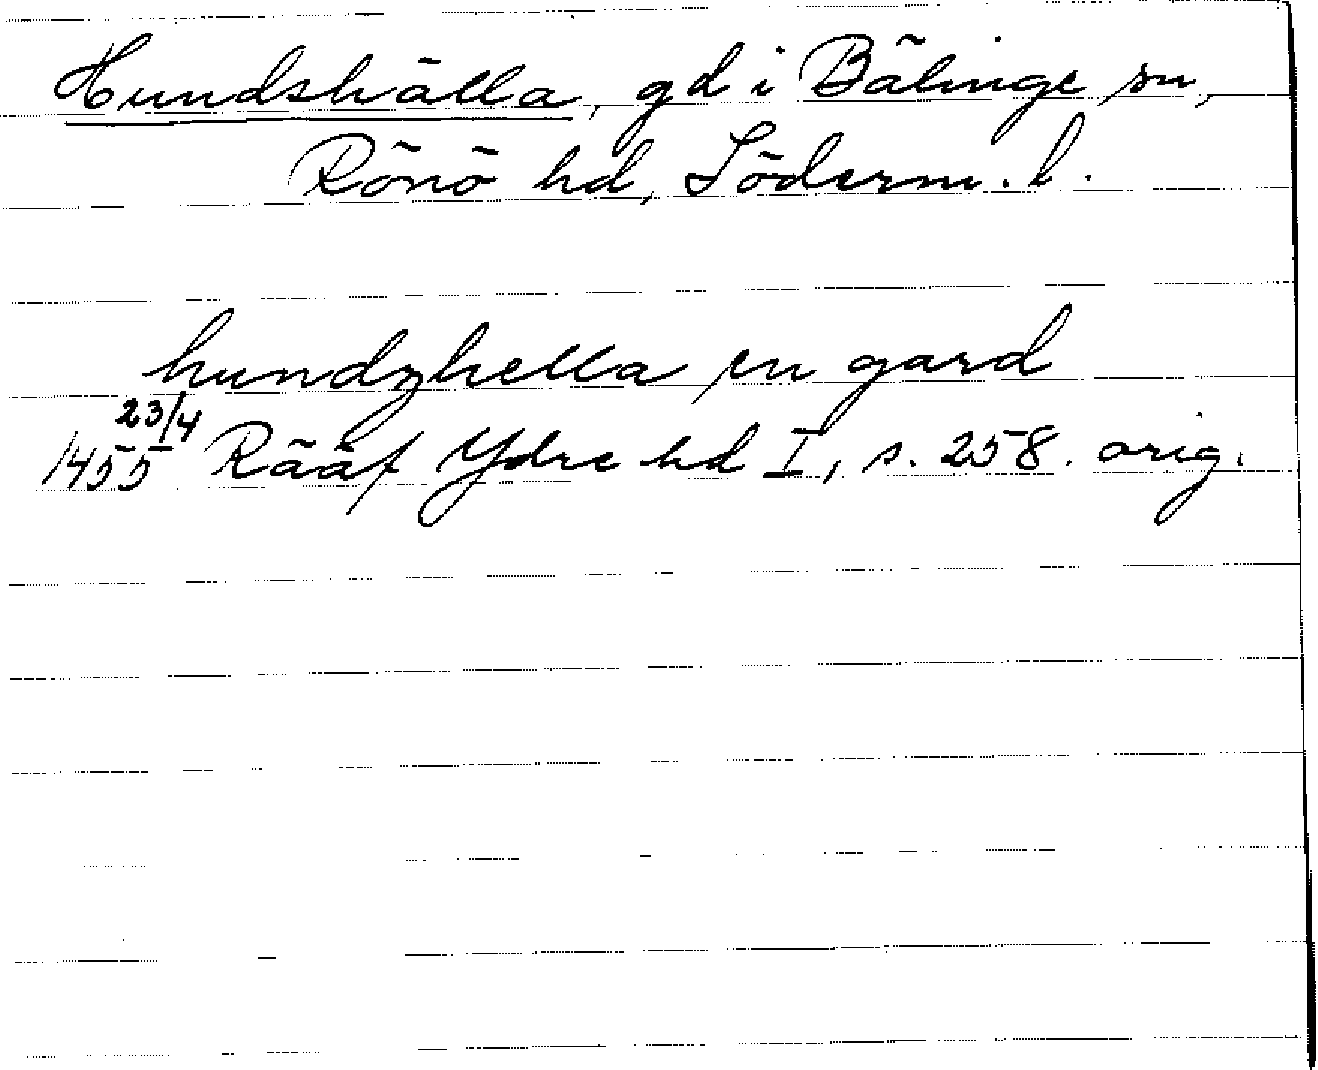 Hundshälla, gd i Bälinge sn,
Rönö hd, Söderm. l.
hundzhella en gard
23/4
1455 Rääf Ydre hd I, s. 258. orig.